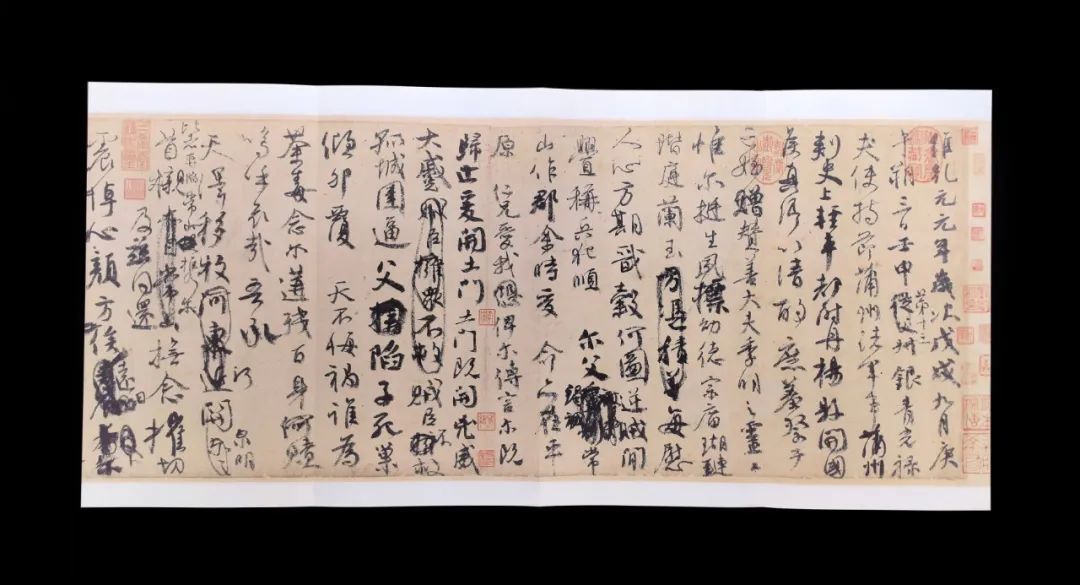 維乾元元年歲次戊戌九月庚
午朔三日壬申第十三從父銀青光祿
夫使持節蒲州諸軍事蒲州
刺史上輕車都尉丹楊縣開國
侯真卿以清酌庶羞祭于
亡姪贈贊善大夫季明之靈曰
惟爾挺生夙標幼德宗廟瑚璉
階庭蘭玉方憑積善每慰
人心方期戩穀何圖逆賊閒
釁稱兵犯順爾父竭誠常
山作郡余時受命亦在平
原仁兄愛我俾爾傳言爾既
歸止爰開土門土門既開凶威
大蹙賊臣擁眾不救賊臣不救
孤城圍逼父陷子死巢
傾卵覆天不悔禍誰為
荼毒念爾遘殘百身何贖
嗚乎哀哉吾承
天澤移牧河東近泉明
比者再陷常山攜爾
首櫬及茲同還撫念摧切
震悼心顏方俟遠日